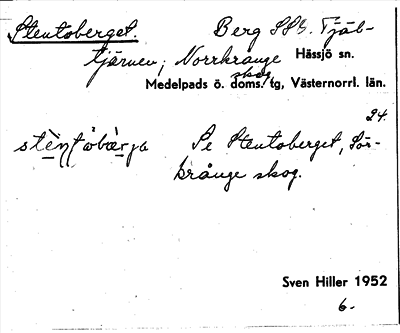 Stentoberget. Berg SSV. Tjäb-
tjärnen, Norrkrånge Hässjö sn.
skog
Medelpads ö. doms. tg, Västernorrl. län.
24.
Se Stentoberget, Sör-
krånge skog.
Sven Hiller 1952
6.